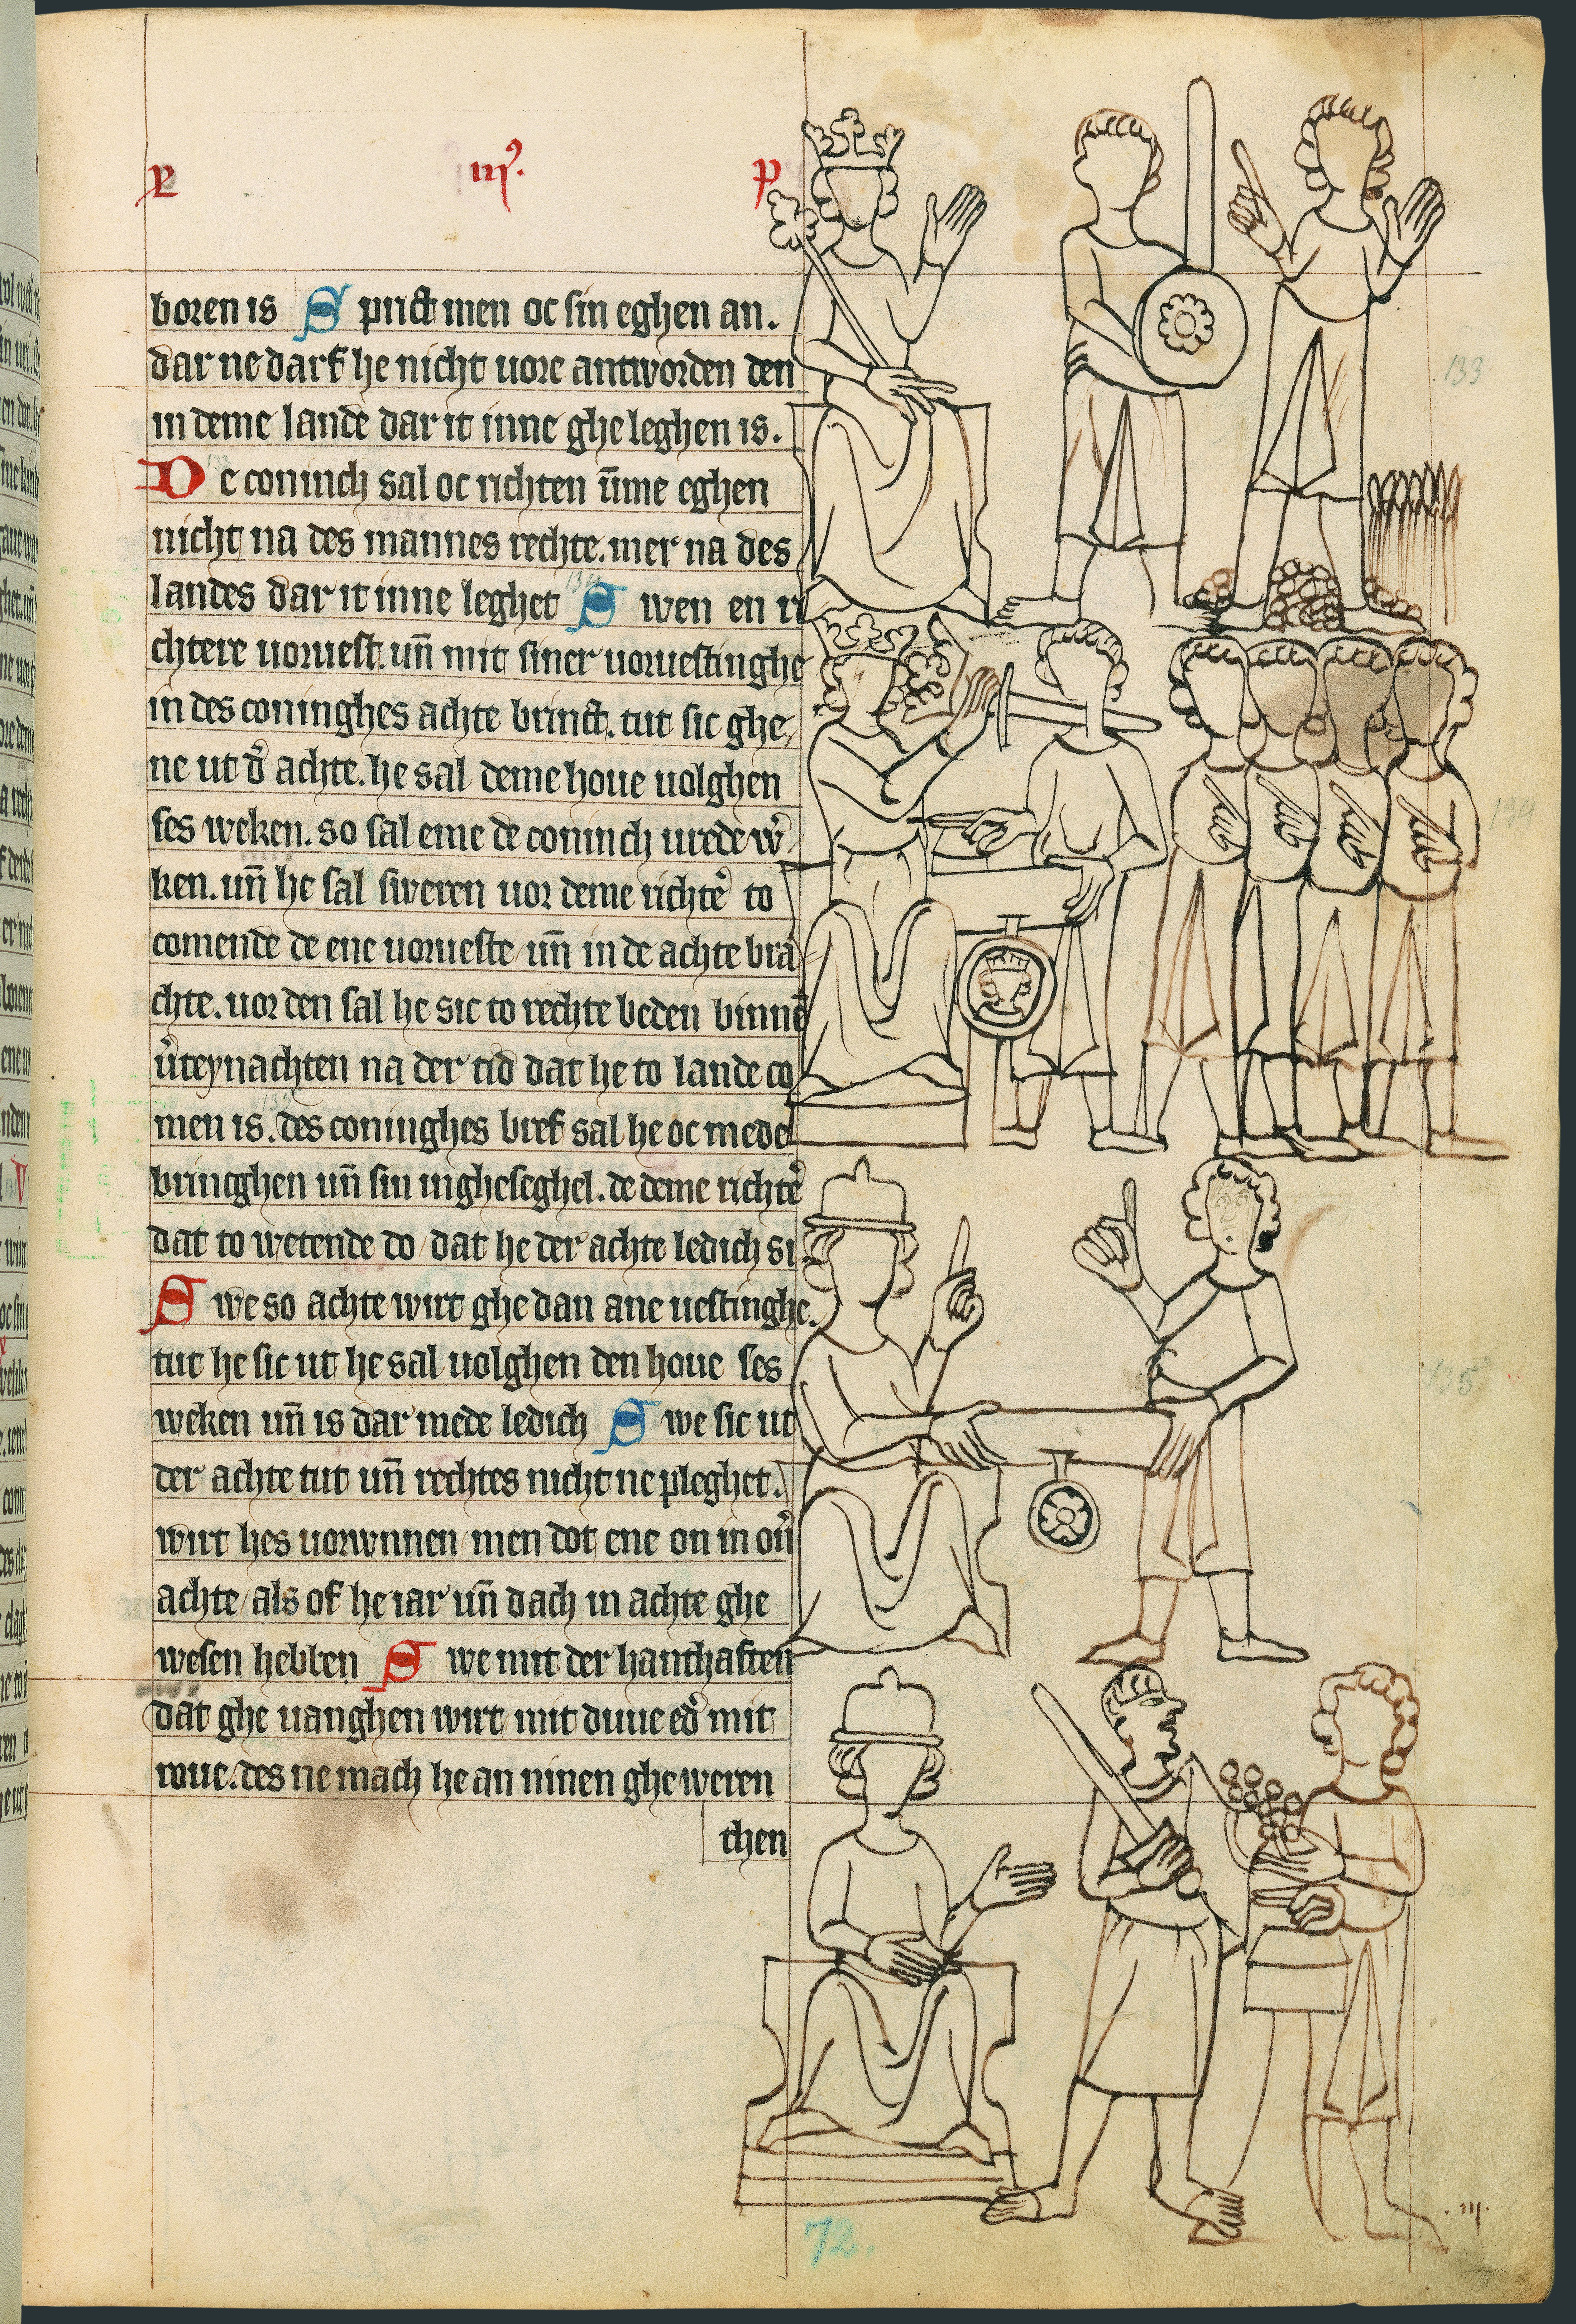 ꝑ iij⁹. ꝑ
boren is Sprict men oc sin eghen an.
dar ne darf he nicht uore antworden den
in deme lande dar it inne gheleghen is.
De coninch sal oc richten um̄me eghen
nicht na des mannes rechte. mer na des
landes dar it inne leghet Swen en ri
chtere uoruest. un̄ mit siner uoruestinghe
in des coninghes achte brinct. tut sic ghe,
ne ut d' achte. he sal deme houe uolghen
ses weken. so sal eme de coninch urede w'
ken. un̄ he sal sweren uor deme richte' to
comende de ene uorueste / un̄ in de achte bra
chte. uor den sal he sic to rechte beden binnē
u'teynachten na der tid dat he to lande co
men is. des coninghes bref sal he oc mede
bringhen un̄ sin ingheseghel. de deme richte'
dat to wetende do / dat he der achte ledich si
Sweso achte wirt ghedan ane uestinghe.
tut he sic ut he sal uolghen den houe ses
weken un̄ is dar mede ledich Swe sic ut
der achte tut un̄ rechtes nicht ne pleghet.
wirt hes uorwnnen / men dot ene on in ou'
achte / als of he iar un̄ dach in achte ghe
wesen hebben Swe mit der hanthaften
dat ghe uanghen wirt mit duue ed' mit
roue. des ne mach he an ninen gheweren
then
133
134
135
136
72.